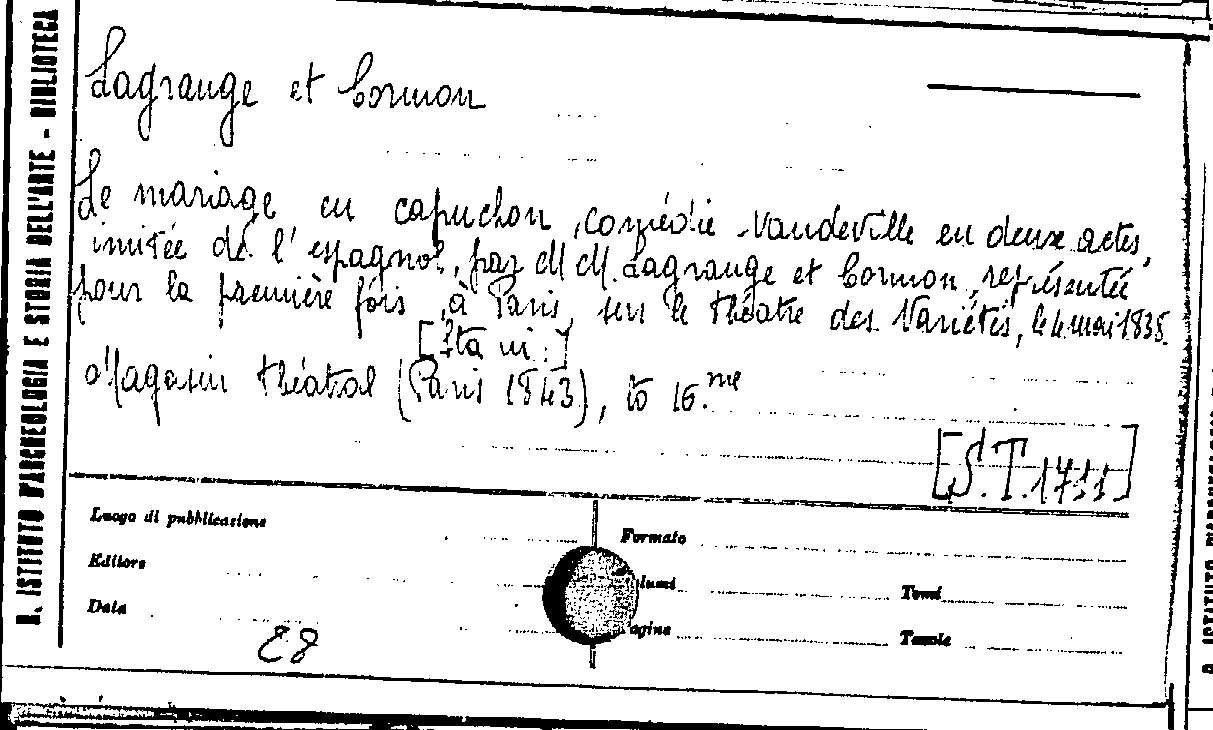 R. ISTITUTO D'ARCHEOLOGIA E STORIA DELL'ARTE - BIBLIOTECA
Lagrange et Cormon
Le mariage en capuchon, comédie-vaudeville en deux actes,
imitée de l'espagnol, par M M. Lagrange et Cormon, représentée
pour la première fois, à Paris, sur le théâtre des Variétés, le 4 mai 1835.
[Sta in:]
Magasin théatral (Paris 1843), to 16.me
[S.T.1711]
Luogo di pubblicazione
Formato
Editore
Volumi
Tomi
Data
Pagine
Tavole